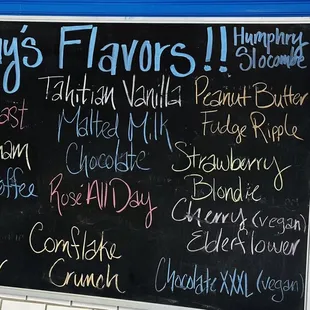 y's Flavors!! Humphry
Slocombe
ast
am
offee
Tahitian Vanilla
Malted Milk
Chocolate
Rosé All Day
Cornflake
Crunch
Peanut Butter
Fudge Ripple
Strawberry
Blondie
Cherry (vegan)
Elderflower
Chocolate XXXL (vegan)